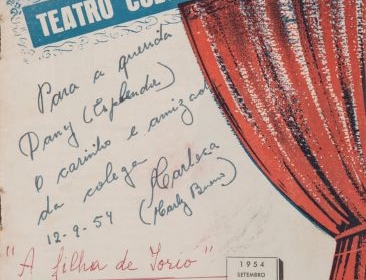 TEATRO
Para a querida
Dany (Esplendor)
O carinho e amizade
da colega
Marleca
12-9-54 (Marly Bueno)
"A filha de Iorio"
1954
SETEMBRO